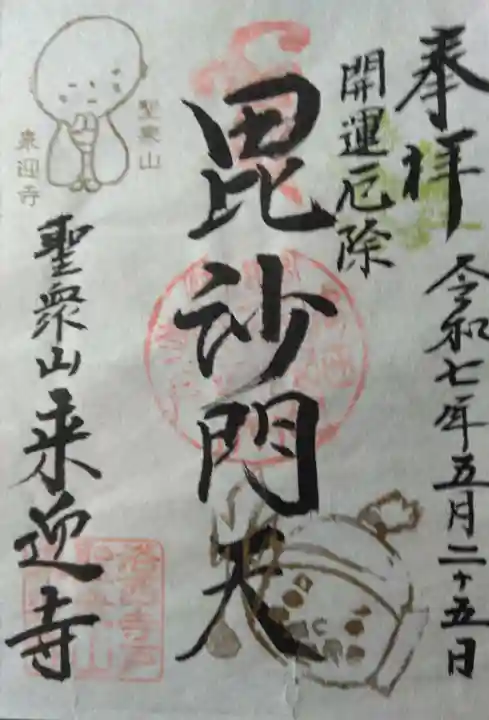 奉拝
開運厄除
令和七年五月二十五日
毘沙門天
聖衆山
来迎寺
聖衆山来迎寺